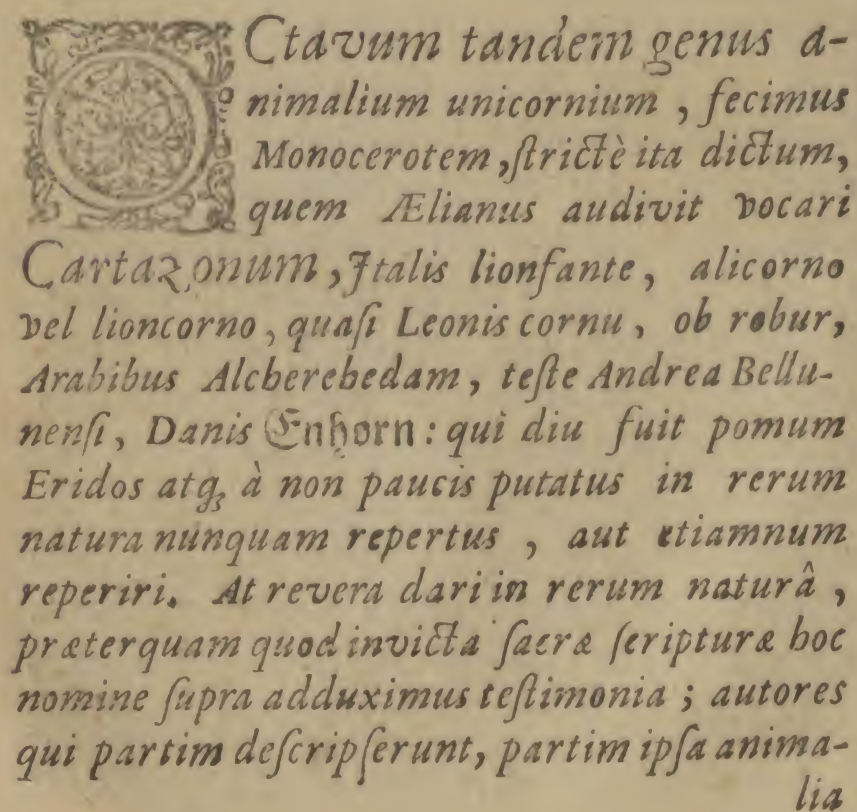 OCtavum tandem genus a-
nimalium unicornium , fecimus
Monocerotem , ſtrictè ita dictum,
quem Ælianus audivit vocari
Cartazonum , Italis lionfante , alicorno
vel lioncorno , quaſi Leonis cornu , ob robur,
Arabibus Alcherebedam , teſte Andrea Bellu-
nenſi , Danis Enhorn : qui diu fuit pomum
Eridos atq; à non paucis putatus in rerum
natura nunquam repertus , aut etiamnum
reperiri. At revera dari in rerum naturâ ,
præterquam quod invicta ſacræ ſcripturæ hoc
nomine ſupra adduximus teſtimonia ; autores
qui partim deſcripſerunt, partim ipſa anima-
lia